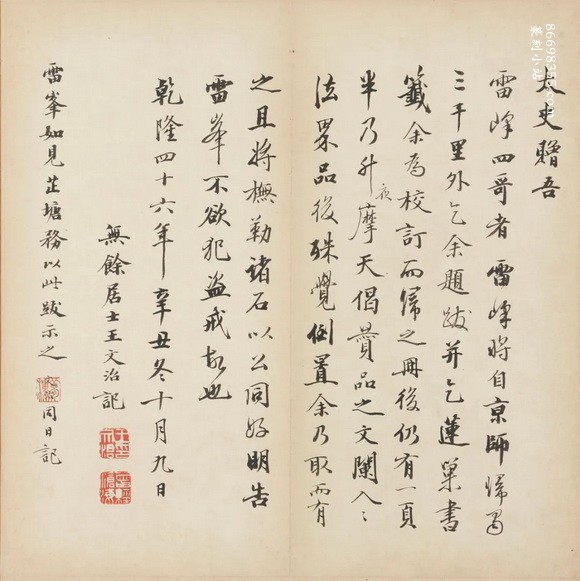 太史贈吾
雷峰四哥者雷峰將自京師歸蜀
三千里外乞余題跋并乞蓮巢書
籤余為校訂而歸之冊後仍有一頁
半乃升夜摩天偈贊品之文闌入
法界品後殊覺倒置余乃取而有
之且將橅勒諸石以公同好明告
雷峯不欲犯盜戒故也
乾隆四十六年辛丑冬十月九日
無餘居士王文治記
雷峯如見芷塘務以此跋示之 同日記
篆刻小站